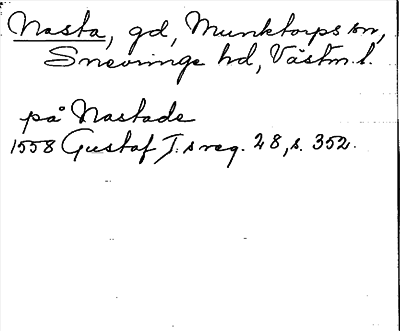 Nasta, gd, Munktorps sn,
Snevringe hd, Västm. l.
på Nastade
1558 Gustaf I:s reg. 28, s. 352.